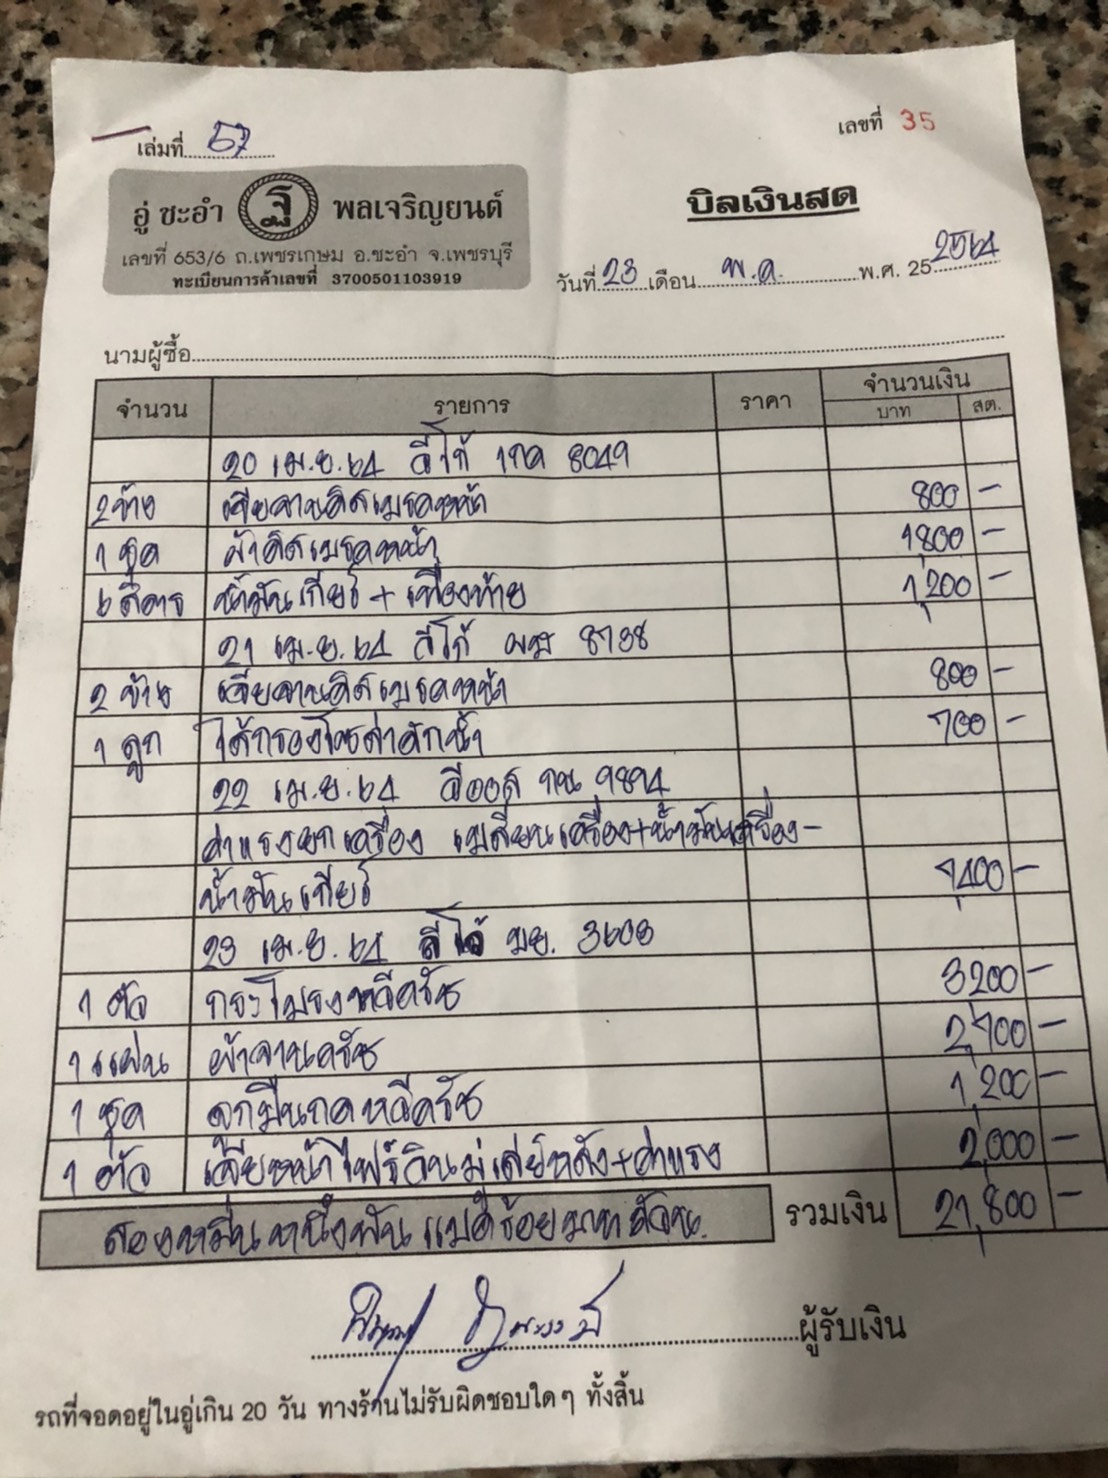 เล่มที่ 57
เลขที่ 35
อู่ ชะอำ ฐ พลเจริญยนต์
เลขที่ 653/6 ถ.เพชรเกษม อ.ชะอำ จ.เพชรบุรี
ทะเบียนการค้าเลขที่ 3700501103919
บิลเงินสด
วันที่ 23 เดือน พ.ค. พ.ศ. 25 2564
นามผู้ซื้อ
จำนวน รายการ ราคา จำนวนเงิน
บาท สต.
20 เม.ย. 64 อีโก้ 8049
2 ข้าง เจียจานดิสเบรคหน้า 800 -
1 ชุด ผ้าดิสเบรคหน้า 1,800 -
6 ลิตร น้ำมันเกียร์ + เฟืองท้าย 1,200 -
21 เม.ย. 64 อีโก้ ผม 8738
2 ข้าง เจียจานดิสเบรคหน้า 800 -
1 ลูก ไส้กรองโซล่าดักน้ำ 700 -
22 เม.ย. 64 วีออส กน 9894
ค่าแรงยกเครื่อง เปลี่ยนเครื่อง+น้ำมันเครื่อง -
น้ำมันเกียร์ 7,400 -
23 เม.ย. 64 อีโก้ บย. 3603
1 ตัว กระโปรงหวีครัช 3,200 -
1 แผ่น ผ้าจานครัช 2,700 -
1 ชุด ลูกปืนกดหวีครัช 1,200 -
1 ตัว เจียหน้าไฟร์วิน หลัง+ค่าแรง 2,000 -
สองหมื่นหนึ่งพันแปดร้อยบาทถ้วน รวมเงิน 21,800 -
ผู้รับเงิน
รถที่จอดอยู่ในอู่เกิน 20 วัน ทางร้านไม่รับผิดชอบใดๆ ทั้งสิ้น